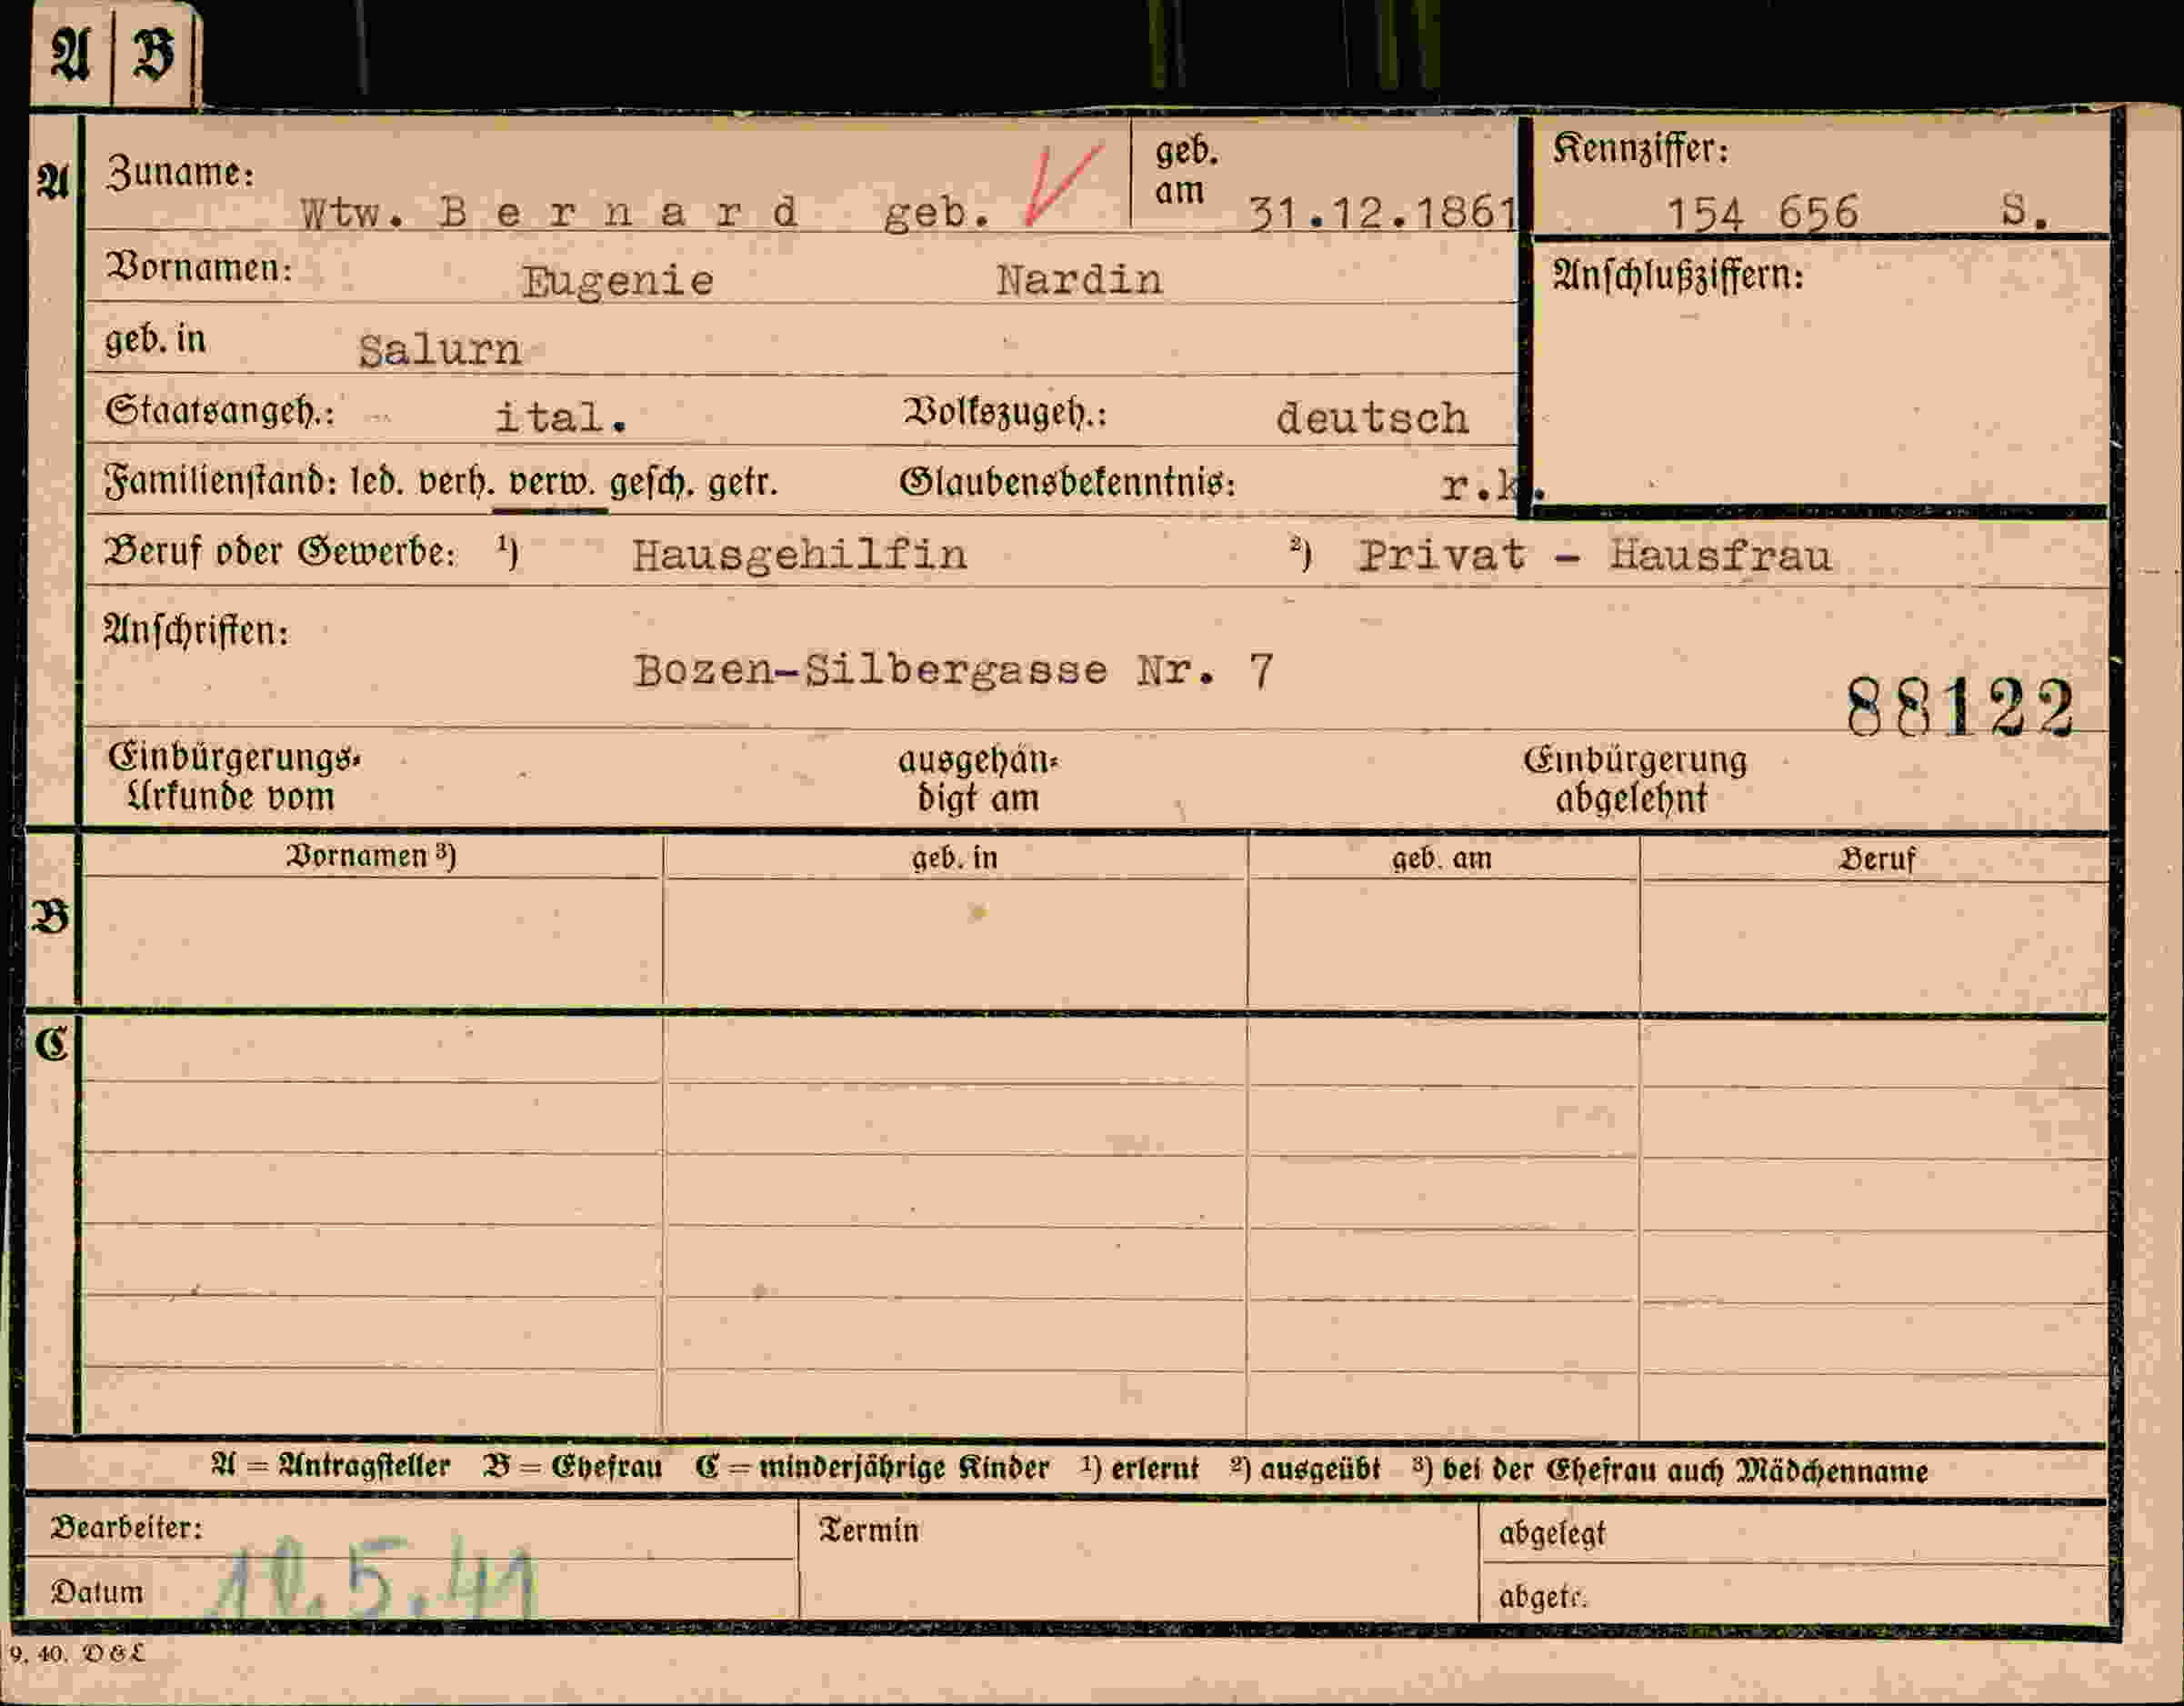 A B
A
Zuname: Wtw. B e r n a r d geb. geb. am 31.12.1861
Kennziffer: 154 656 S.
Vornamen: Eugenie Nardin
Anschlußziffern:
geb. in Salurn
Staatsangeh.: ital. Volkszugeh.: deutsch
Familienstand: led. verh. verw. gesch. getr. Glaubensbekenntnis: r.k.
Beruf oder Gewerbe: ¹) Hausgehilfin ²) Privat - Hausfrau
Anschriften:
Bozen-Silbergasse Nr. 7
88122
Einbürgerungs-Urkunde vom ausgehändigt am Einbürgerung abgelehnt
Vornamen ³) geb. in geb. am Beruf
B
C
A = Antragsteller B = Ehefrau C = minderjährige Kinder ¹) erlernt ²) ausgeübt ³) bei der Ehefrau auch Mädchenname
Bearbeiter: Termin abgelegt
Datum .5.41 abgetr.
9. 40. D & L